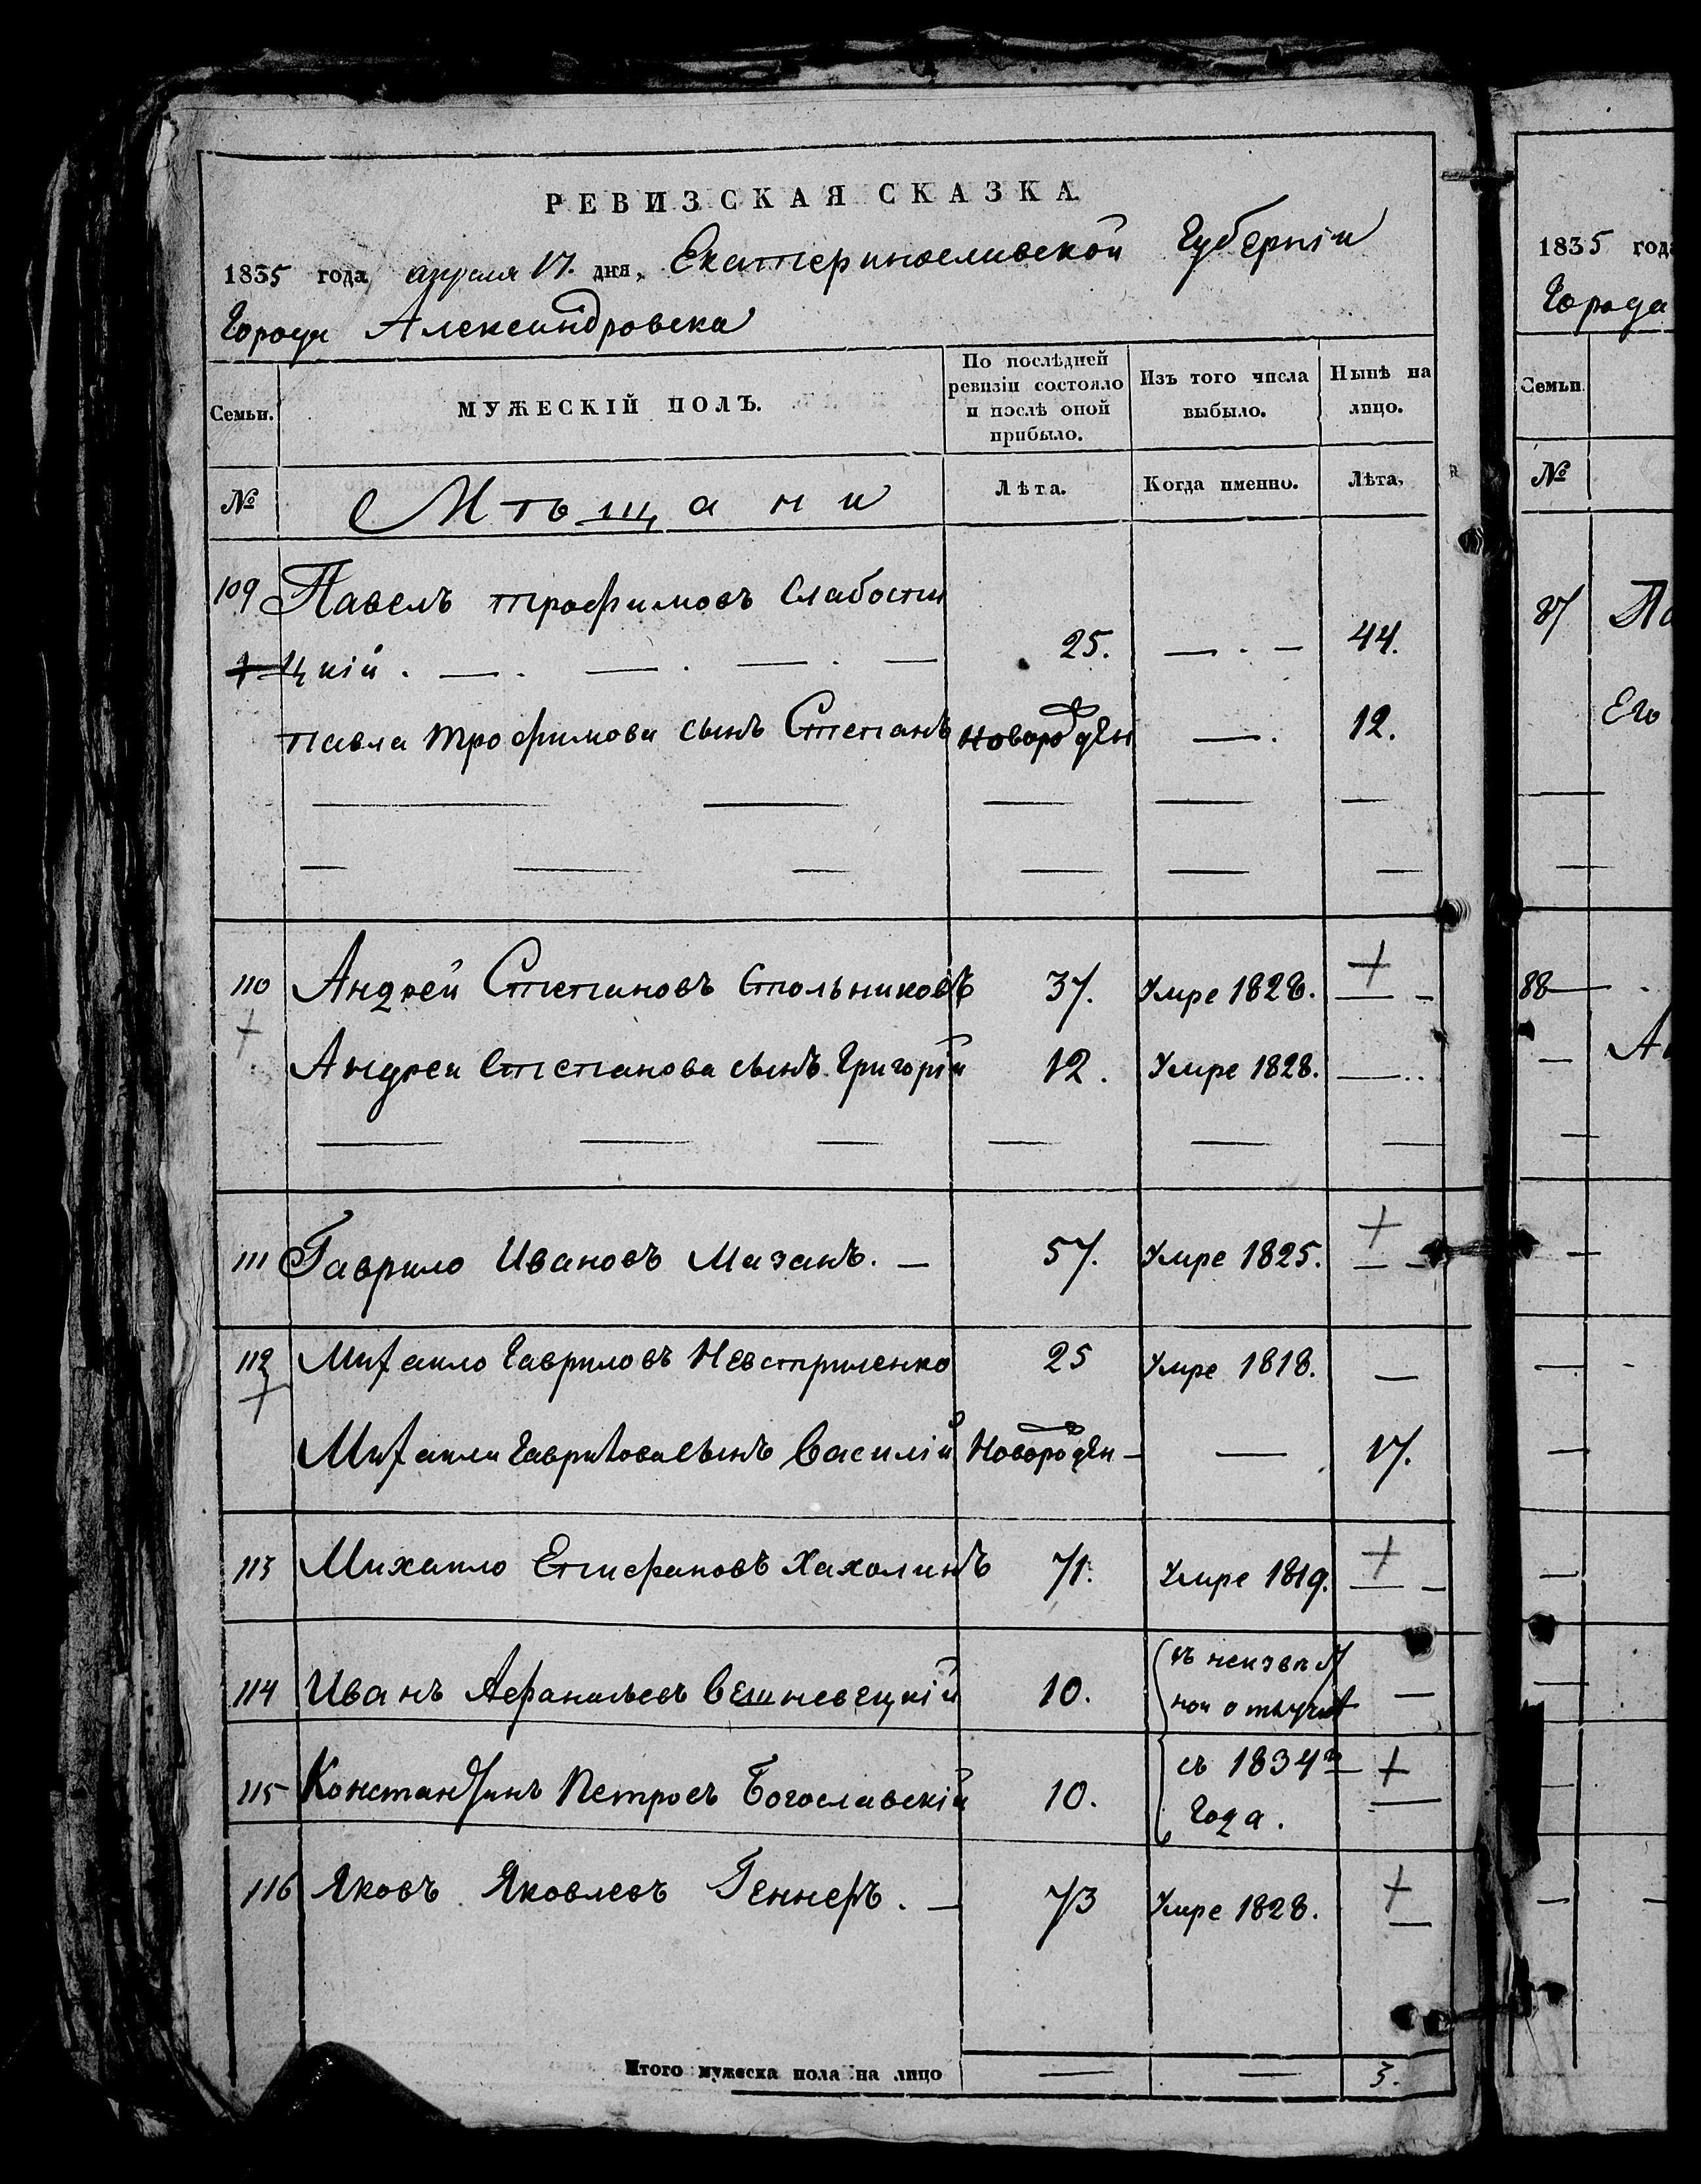 РЕВИЗСКАЯ СКАЗКА.
1835 года апреля 17. дня, Екатеринославской Губерніи
Города Александровска
Семьи.
МУЖЕСКІЙ ПОЛЪ.
По послѣдней ревизіи состояло и послѣ оной прибыло.
Изъ того числа выбыло.
Нынѣ на лицо.
№
Мѣщани
Лѣта.
Когда именно.
Лѣта.
109 Павелъ Трофимовъ Слабости
цкій . — . — . — . — 25. — . — 44.
Павла Трофимова сынъ Степанъ новорожден — . 12.
110 Андрей Степановъ Стольниковъ 37. Умре 1828. +
Андрея Степанова сынъ Григорій 12. Умре 1828. —
111 Гаврило Ивановъ Мазанъ. — 57. Умре 1825. +
112 Михаило Гавриловъ Невстриленко 25 Умре 1818. —
Михаила Гаврилова сынъ Василій Новорожден — — 17.
113 Михаило Епифановъ Хахолинъ 71. Умре 1819. +
114 Иванъ Афанасьевъ Вешневецкій 10. въ неизвѣст
ной отлучкѣ —
115 Константинъ Петровъ Богославскій 10. съ 1834го +
года.
116 Яковъ Яковлевъ Геннеръ. — 73 Умре 1828. +
Итого мужеска пола на лицо — — 3.
1835 года
Города
Семьи.
№
87 Па
Его
88
Ан